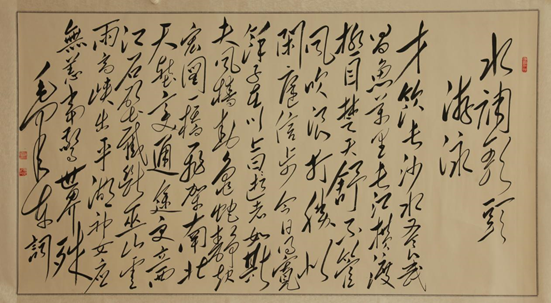 水調歌頭
游泳
才饮长沙水又食武
昌魚萬里长江横渡
极目楚天舒不管
风吹浪打勝似
閑庭信步今日得寬
馀子在川上曰逝者如斯
夫风樯动龟蛇静起
宏图一橋飛架南北
天堑变通途更立西
江石壁截断巫山雲
雨高峡出平湖神女应
無恙當驚世界殊
毛泽东詞